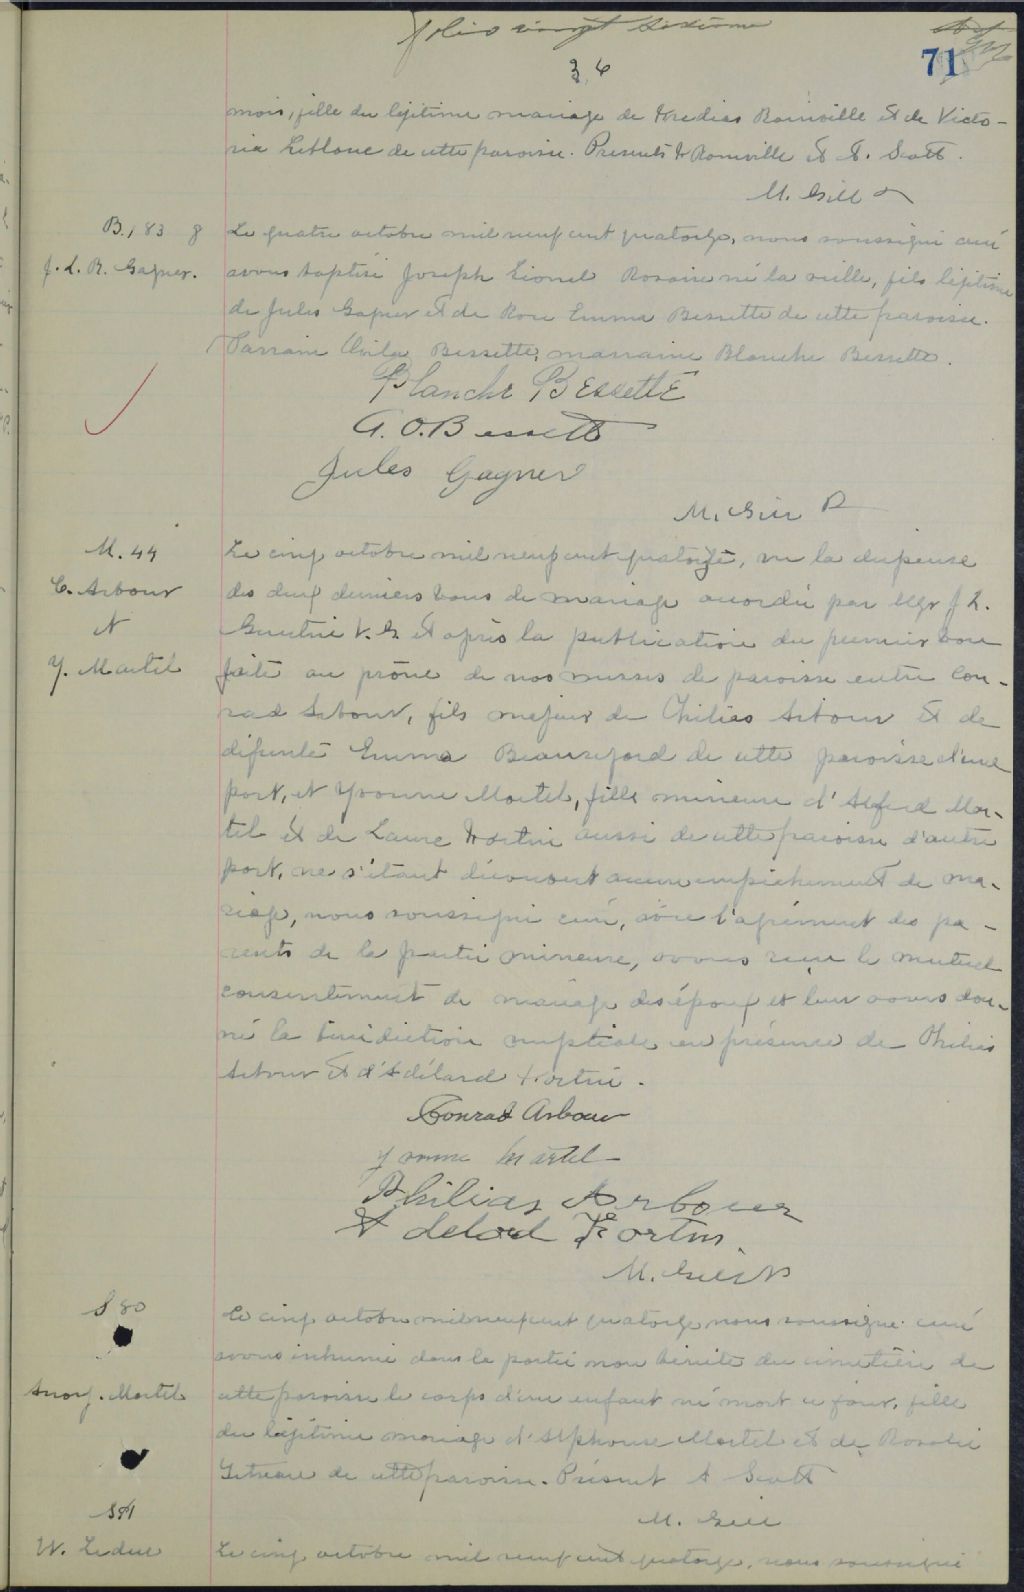 folio vingt sixième
71
36
mois, fille du légitime mariage de Hredias Rainville et de Victo-
ria Leblanc de cette paroisse. Présents H Rainville et A. Scott.
M. Gill
B. 183 8
J. L. R. Gagner.
Le quatre octobre mil neuf cent quatorze, nous soussigné curé
avons baptisé Joseph Lionel Rosaire né la veille, fils légitime
de Jules Gagner et de Rose Emma Bessette de cette paroisse.
Parrain Ovila Bessette, marraine Blanche Bessette.
Blanche Bessette
A. O. Bessette
Jules Gagner
M. Gill
M. 44
C. Arbour
et
Y. Martel
Le cinq octobre mil neuf cent quatorze, vu la dispense
des deux derniers bans de mariage accordée par Mgr J L.
Guertin V. G. et après la publication du premier ban
faite au prône de nos messes de paroisse entre Con-
rad Arbour, fils majeur de Philias Arbour et de
défunte Emma Beauregard de cette paroisse d'une
part, et Yvonne Martel, fille mineure d'Alfred Mar-
tel et de Laure Fortin aussi de cette paroisse d'autre
part, ne s'étant découvert aucun empêchement de ma-
riage, nous soussigné curé, avec l'agrément des pa-
rents de la partie mineure, avons reçu le mutuel
consentement de mariage des époux et leur avons don-
né la bénédiction nuptiale en présence de Philias
Arbour et d'Adélard Fortin.
Conrad Arbour
Yvonne Martel
Philias Arbour
Adelard Fortin
M. Gill
S 80
Anoy. Martel
Le cinq octobre mil neuf cent quatorze nous soussigné curé
avons inhumé dans la partie non bénite du cimetière de
cette paroisse le corps d'une enfant né mort ce jour, fille
du légitime mariage d'Alphonse Martel et de Rosalie
de cette paroisse. Présent A Scott
M. Gill
S 81
W. Leduc
Le cinq octobre mil neuf cent quatorze, nous soussigné